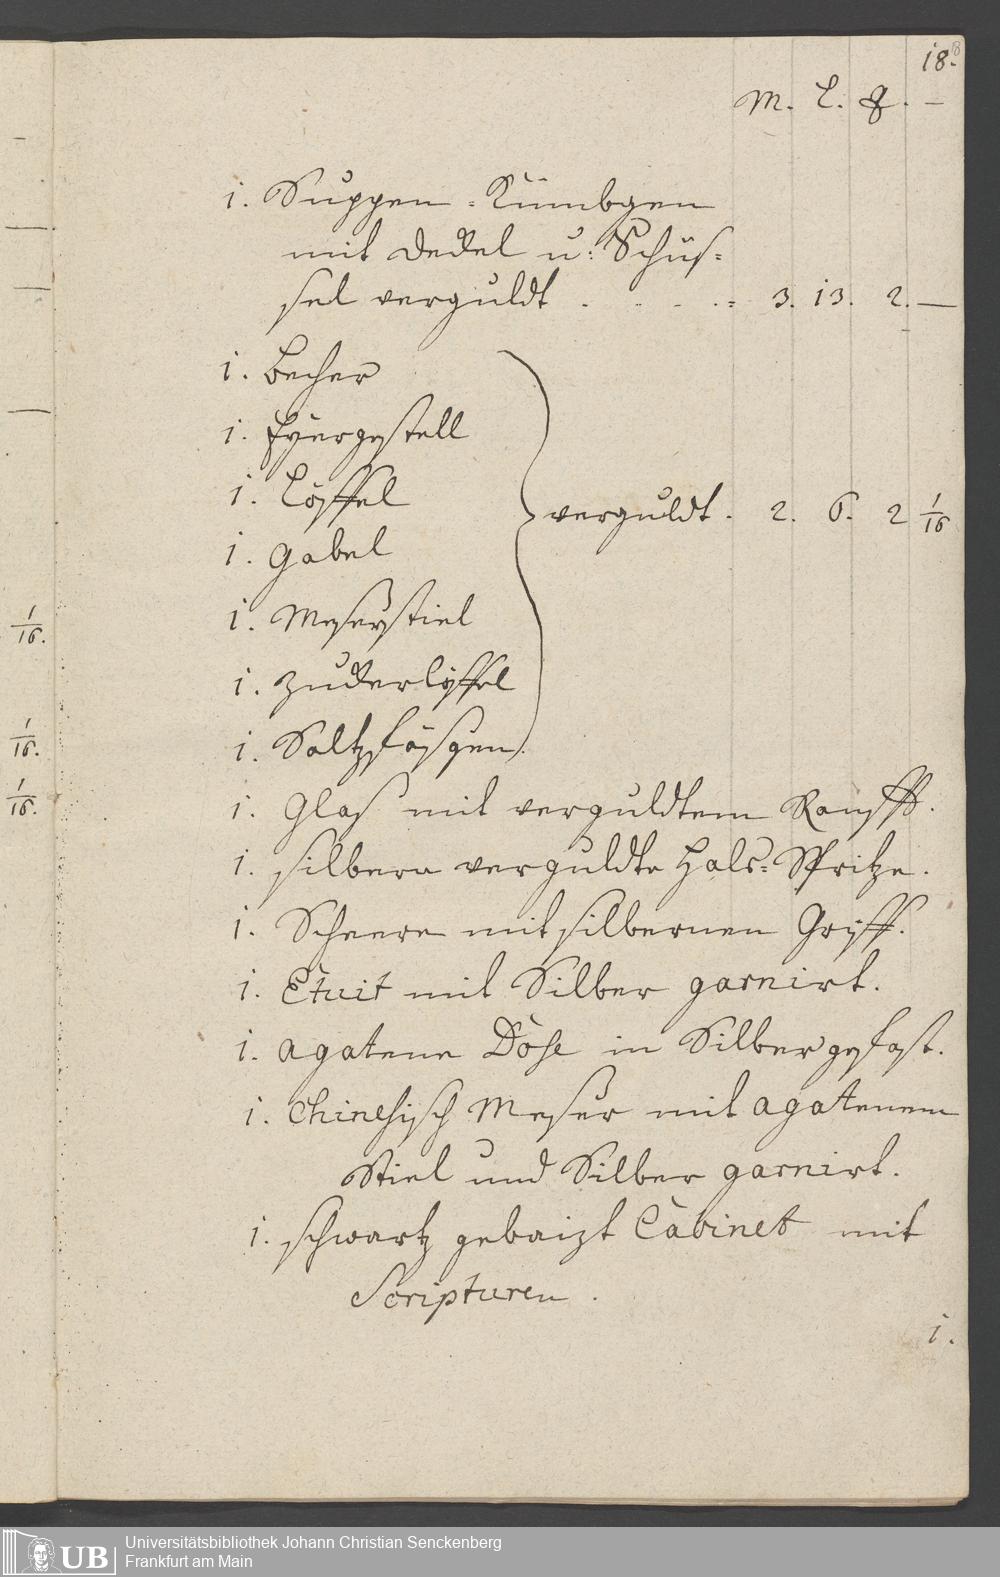 18.
M. L. q. —
1. Suppen-Kümbgen
mit Deckel u: Schüs=
sel verguldt . . . . = 3. 13. 2. —
1. Becher
1. Eyergestell
1. Löffel
verguldt . 2. 6. 2 1/16
1. Gabel
1. Messerstiel
1. Zuckerlöffel
1. Saltzfäsgen
1. Glas mit verguldtem Ranfft.
1. silbern verguldte Hals=Spritze.
1. Scheere mit silbernen Griff.
1. Etuit mit Silber garnirt.
1. agatene Dose in Silber gefast.
1. Chinesisch Messer mit agatenem
Stiel und Silber garnirt.
1. schwartz gebaizt Cabinet mit
Scripturen.
1.
1/16.
1/16.
1/16.
UB
Universitätsbibliothek Johann Christian Senckenberg
Frankfurt am Main